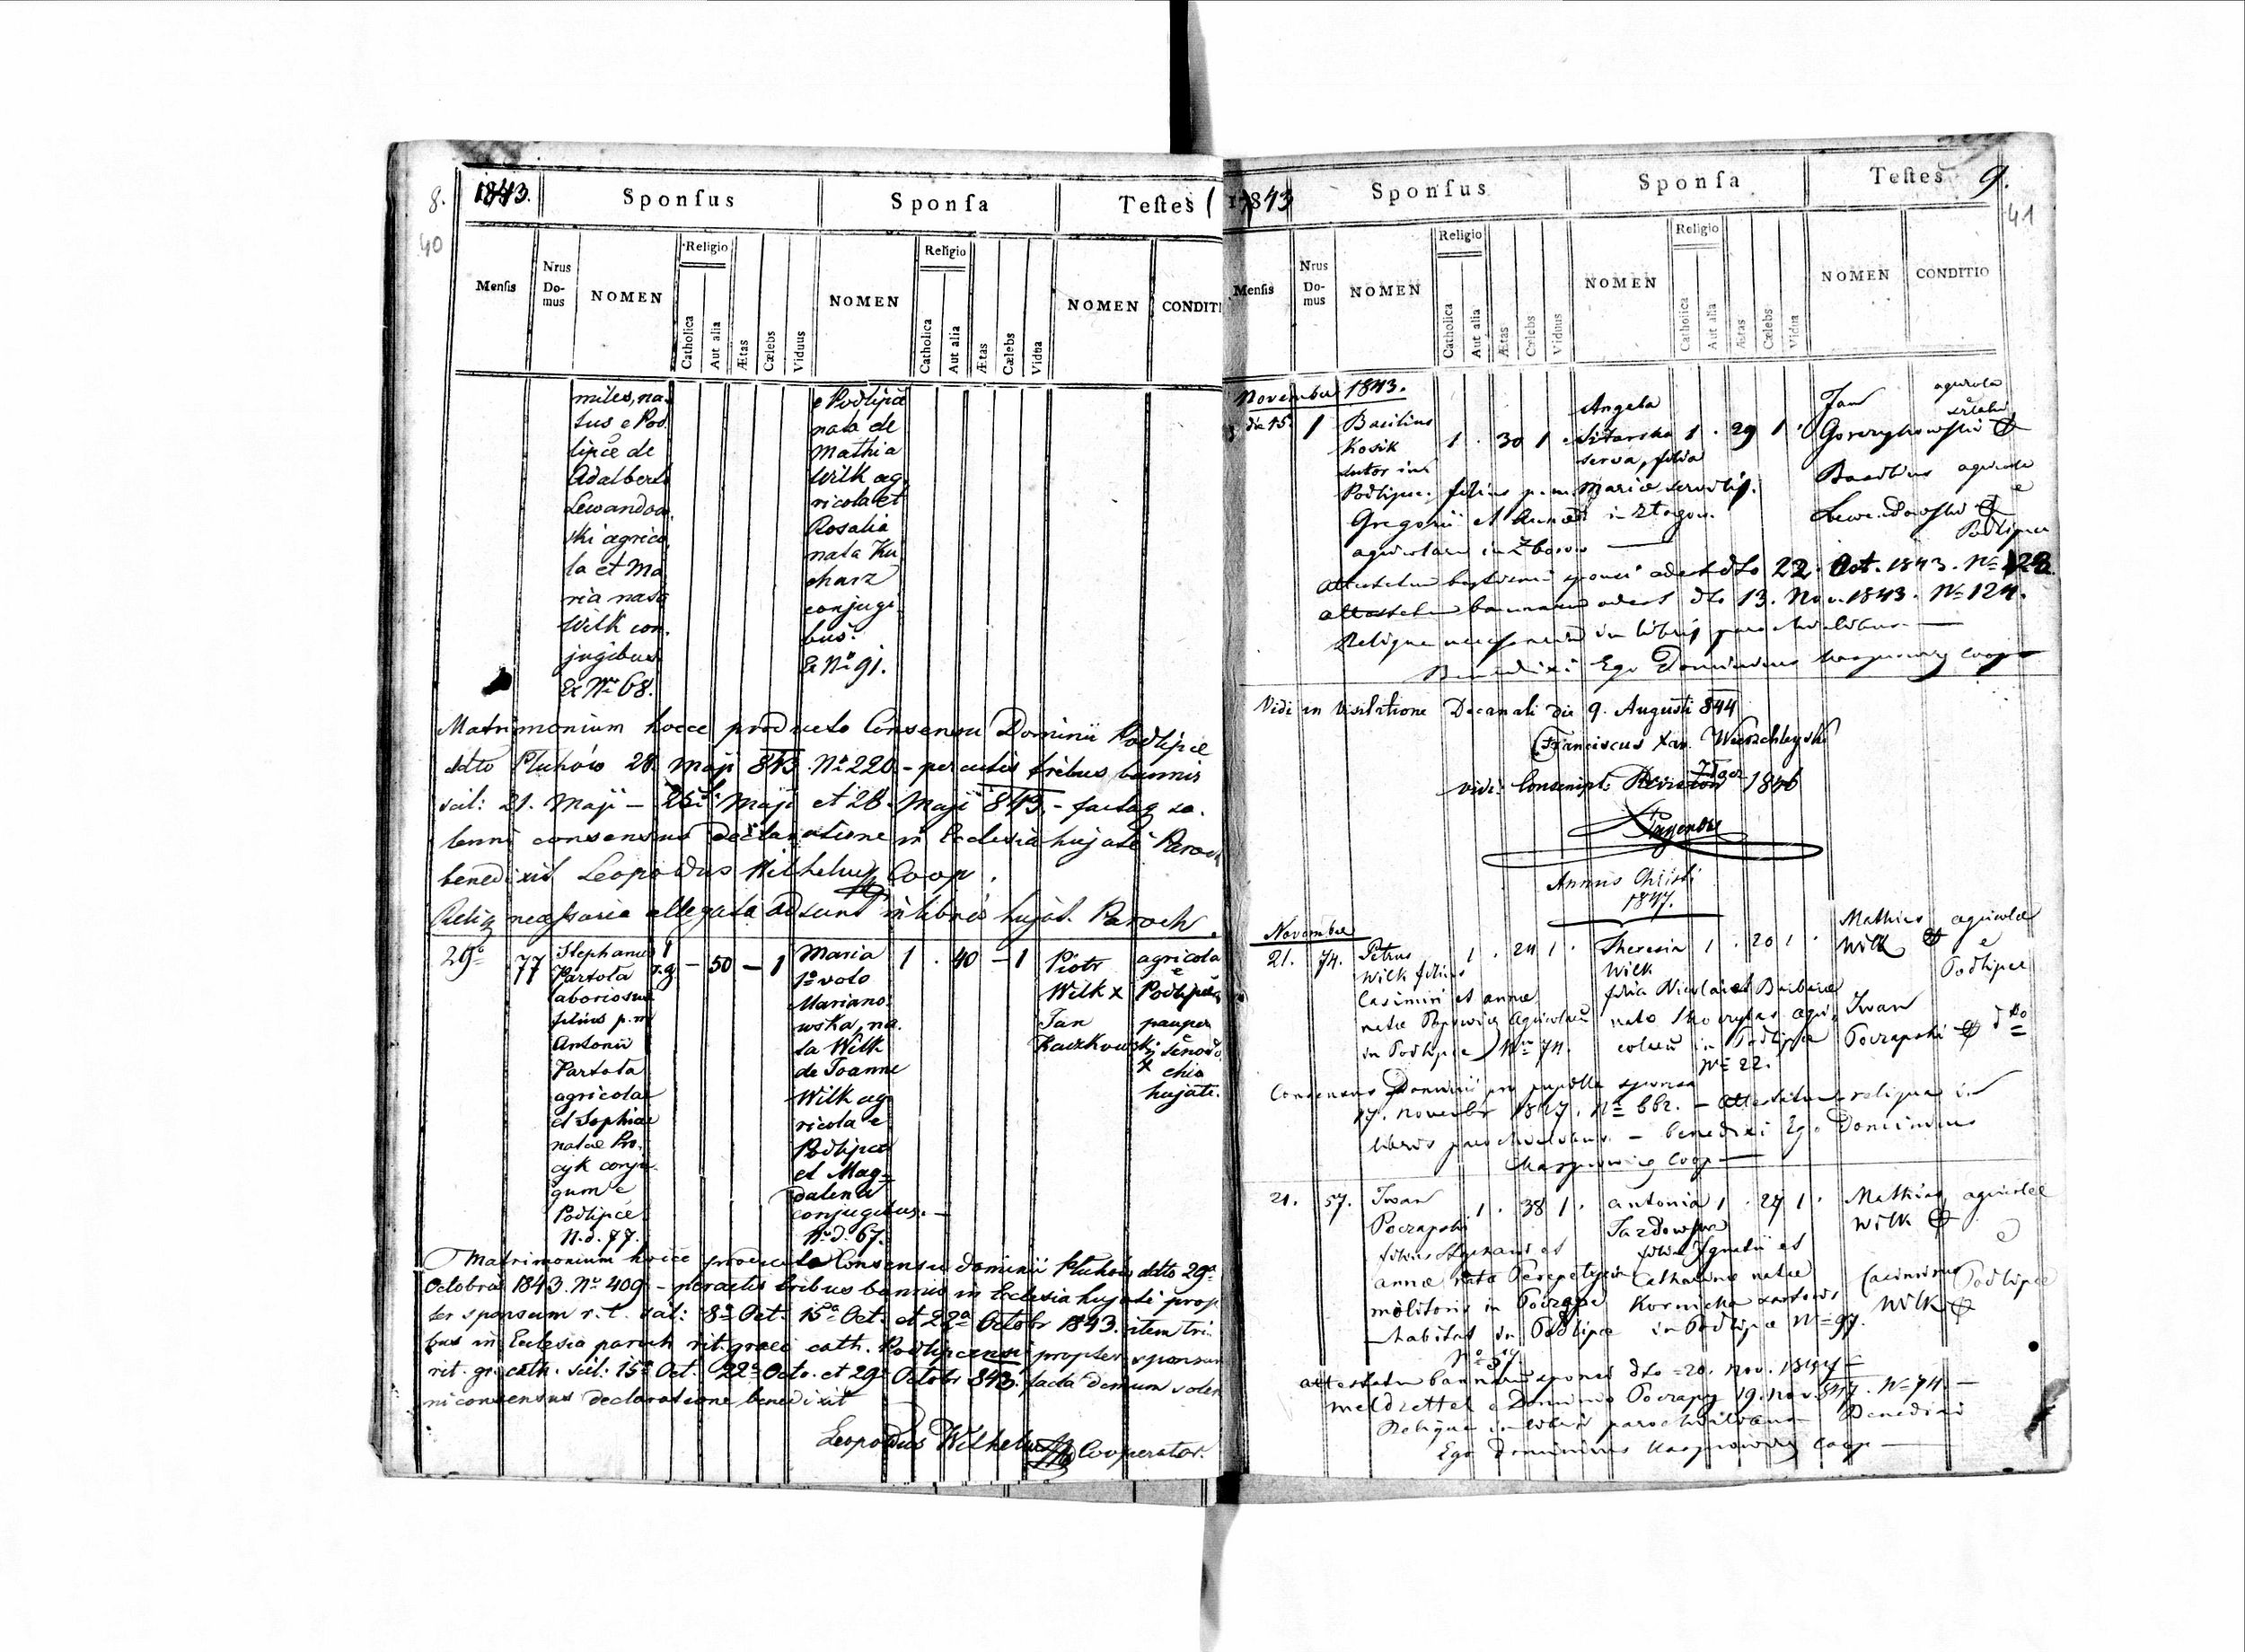 8.
1843.
Sponsus
Sponsa
Testes
40
Mensis
Nrus Do-mus
NOMEN
Religio
Catholica
Aut alia
Ætas
Cælebs
Viduus
NOMEN
Religio
Catholica
Aut alia
Ætas
Cælebs
Vidua
NOMEN
CONDITI
miles, na
tus e Pod
lipce de
Adalberto
Lewandow
ski agrico
la et Ma
ria nata
Wilk con
jugibus
Ex Nr 68.
e Podlipce
nata de
Mathia
Wilk ag
ricola et
Rosalia
nata Ku
charz
conjugi
bus.
Ex Nº 91.
Matrimonium hocce producto Consensu Dominii Podlipce
ddto Pluhów 28. Maji 843 Nº 220 - peractis tribus bannis
scil: 21. Maji - 25. Maji et 28. Maji 843. - factaq so
lenni consensus declaratione in Ecclesia hujate Paroch
benedixit Leopoldus Wilhelm Coop.
Reliq necessaria allegata adsunt in libris hujat. Paroch.
29ª
77
Stephanus
Partola
laboriosus
filius p.m
Antonii
Partola
agricolae
et Sophiae
natae Pro
cyk conju
gum e
Podlipce
N.d. 77.
1
r.g
- 50 - 1
Maria
1º voto
Mariano
wska, na
ta Wilk
de Joanne
Wilk ag
ricola e
Podlipce
et Mag=
dalena
conjugibus. -
Nr d. 67.
1 . 40 - 1
Piotr
Wilk x
agricola
e
Podlipce
Jan
Raczkowski
pauper
x
hujati.
Matrimonium hocce producto Consensu dominii Pluhów ddto 29ª
Octobris 1843. Nº 409 - peractis tribus bannis in Ecclesia hujati prop
ter sponsam r.l. scil: 8ª Oct. 15ª Oct. et 22ª Octobr 1843. item tri
bus in Ecclesia paroch rit. graeci cath. Podlipcensi propter sponsum
rit. gr. cath. scil: 15ª Oct. 22ª Octo. et 29ª Octobr 843. facta demum solen
ni consensus declaratione benedixit
Leopoldus Wilhelm Cooperator.
1843
Sponsus
Sponsa
Testes
9.
41
Mensis
Nrus Do-mus
NOMEN
Religio
Catholica
Aut alia
Ætas
Cælebs
Viduus
NOMEN
Religio
Catholica
Aut alia
Ætas
Cælebs
Vidua
NOMEN
CONDITIO
November 1843.
die 15.
1
Basilius
Kosik
sutor in
Podlipce. filius p.m.
Gregorii et Annae
agricolarum in Zborow
1 . 30 1 .
Angela
Sitarska
serva, filia
Mariae
1 . 29 1 .
Jan
agricola
Basilius agricola
Lewandowski
Podlipce
attestatum baptismi sponsi adest dto 22. Oct. 1843. Nº
attestatum bannorum adest dto 13. Nov. 1843. Nº 124.
Reliqua necessaria in libris parochialibus. -
Benedixi Ego Dominicus Kasprowicz coop
Vidi in Visitatione Decanali die 9. Augusti 844
Franciscus Xav.
1846
Annus Christi
1847.
November
21.
74.
Petrus
Wilk filius
Casimiri et Annae
in Podlipce Nr 74.
1 . 24 1 .
Theresia
Wilk
filia Nicolai et Barbarae
in Podlipce
Nº 22.
1 . 20 1 .
Mathias
Wilk
agricola
e
Podlipce
Iwan
Poczapski
dto
Consensus Dominii pro pupilla sponsa
17. Novembr 1847. Nº 662. - attestatum reliqua in
libris parochialibus. - benedixi Ego Dominicus
Kasprowicz Coop
21.
57.
Iwan
Poczapski
1 . 38 1 .
Antonia
1 . 24 1 .
filia Ignatii et
annae nata
Catharinae natae
molitoris in Poczapy
habitat in Podlipce
in Podlipce Nº 97.
Nº 57
Mathias
Wilk
agricolae
e
Podlipce
Casimirus
Wilk
attestatum bannorum sponsi dto 20. Nov. 1847 -
meldzettel e Dominio Poczapy 19. nov. 847. Nº 74. -
Reliqua in libris parochialibus Benedixi
Ego Dominicus Kasprowicz coop -